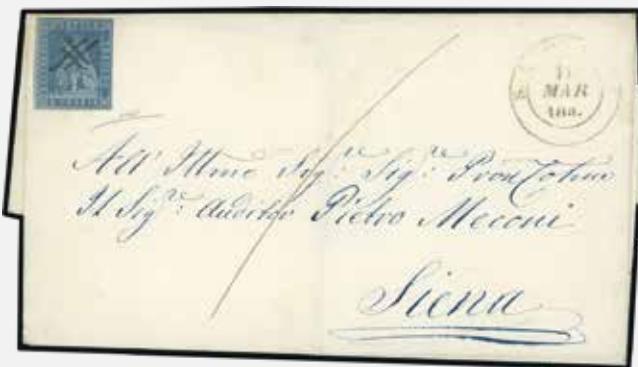 MAR
All' Illmo Sig:re Sig:re Pron Colmo
Il Sig:re Auditor Pietro Meconi
Siena